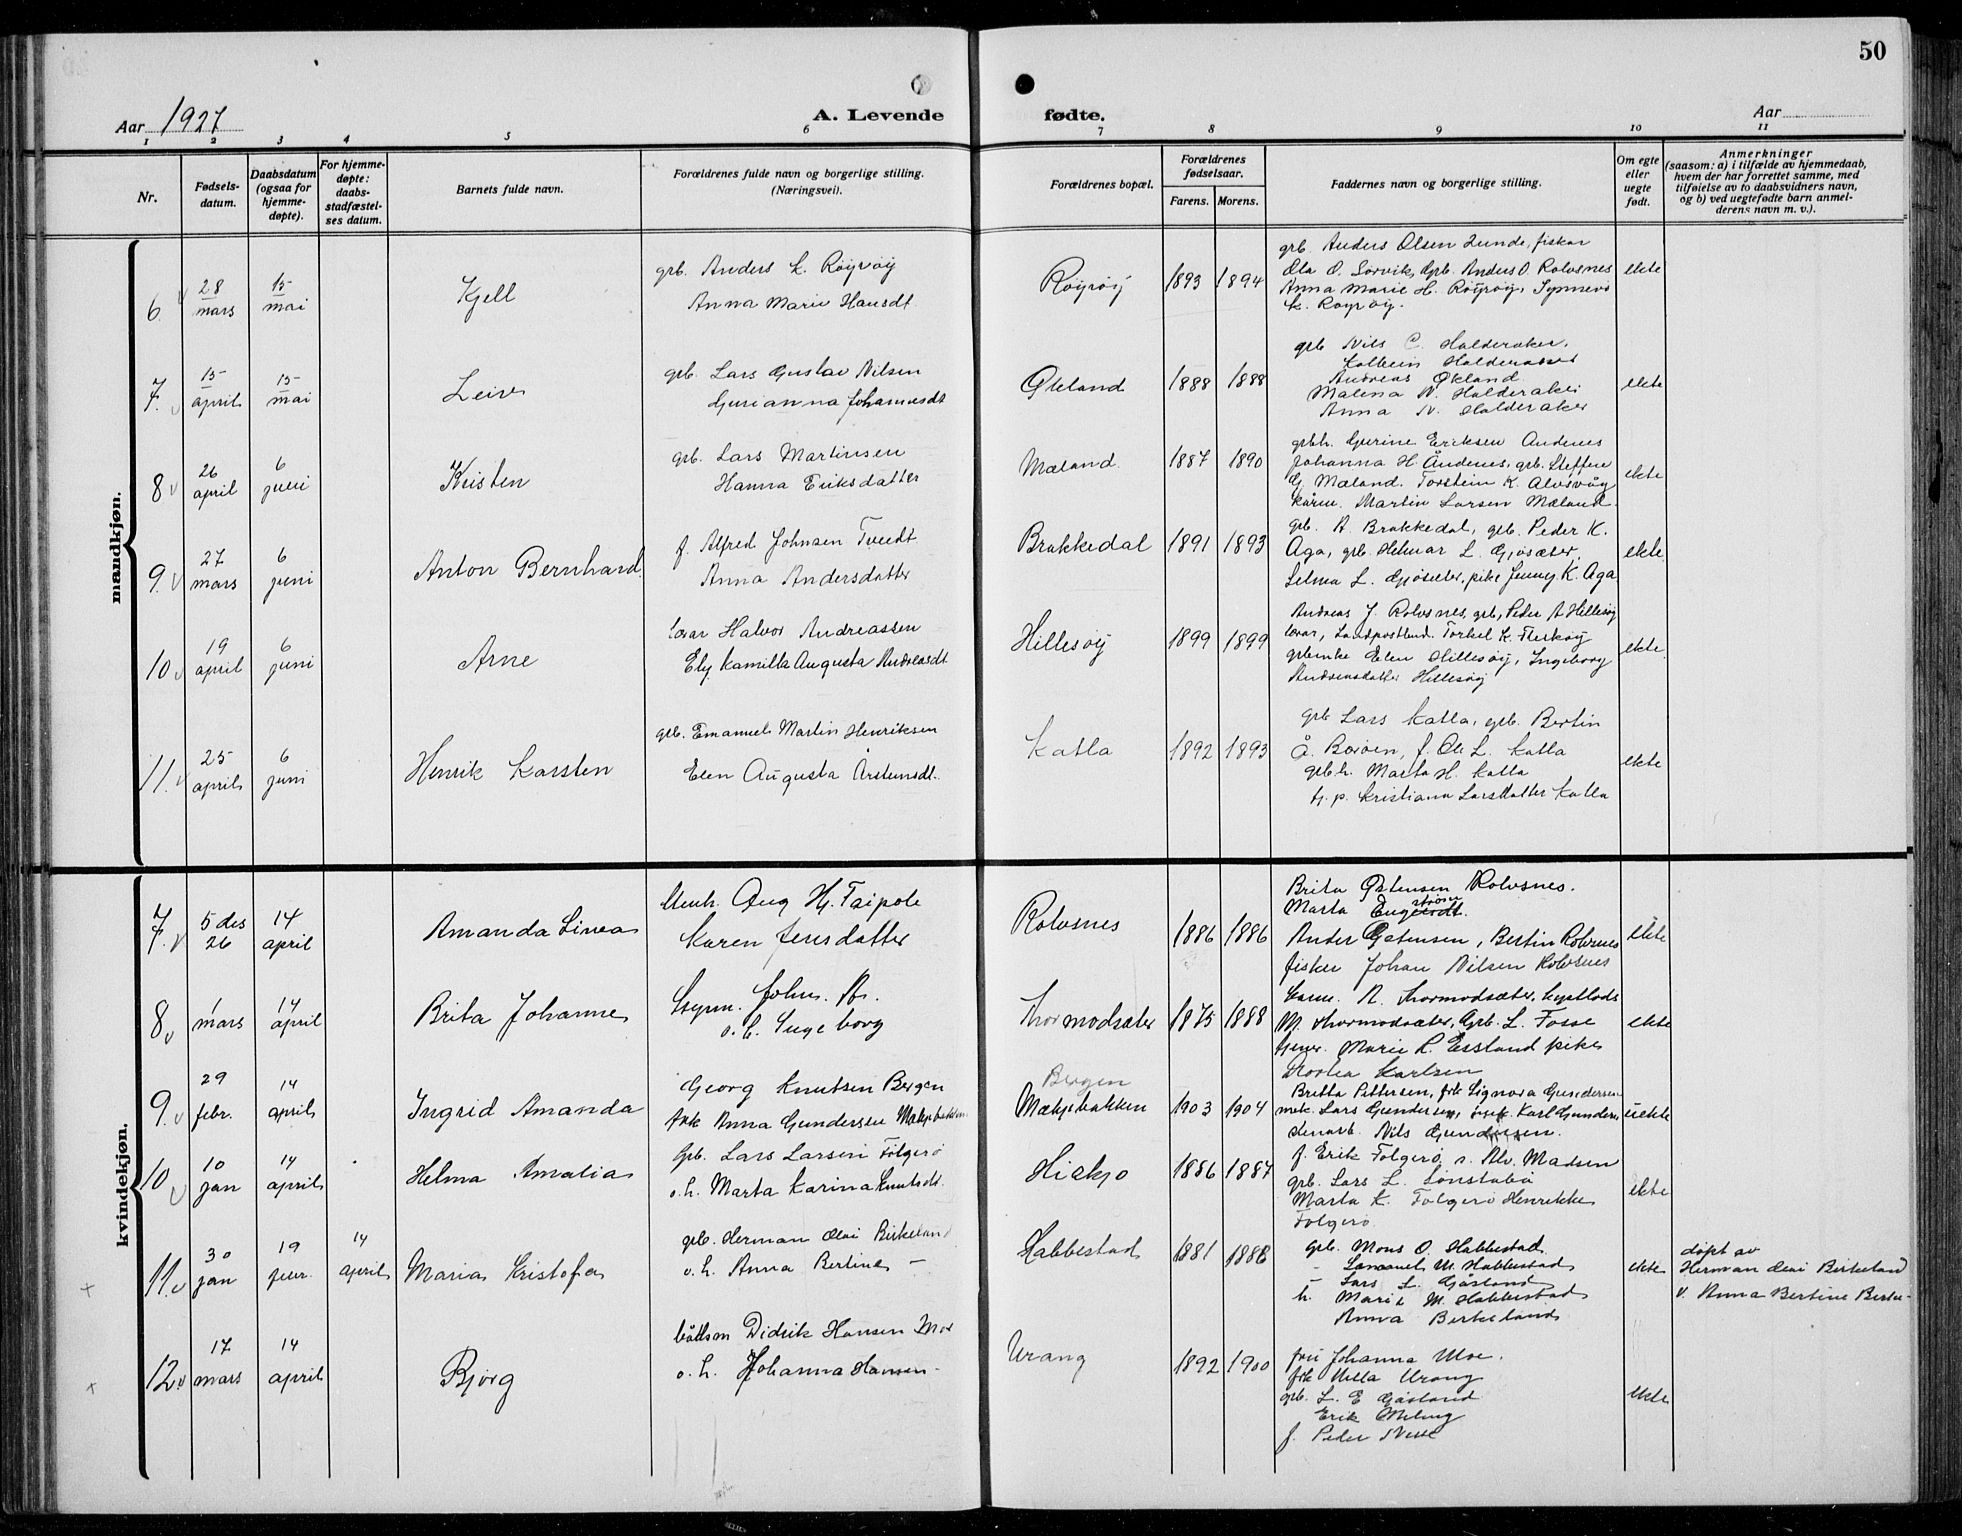 50
Aar 1927
A. Levende
fødte.
Aar
1 2 3 4 5 6 7 8 9 10 11
Nr.
Fødsels-
datum.
Daabsdatum
(ogsaa for
hjemme-
døpte).
For hjemme-
døpte:
daabs-
stadfæstel-
ses datum.
Barnets fulde navn.
Forældrenes fulde navn og borgerlige stilling.
(Næringsvei).
Forældrenes bopæl.
Forældrenes
fødselsaar.
Farens. Morens.
Faddernes navn og borgerlige stilling.
Om egte
eller
uegte
født.
Anmerkninger
(saasom: a) i tilfælde av hjemmedaab,
hvem der har forrettet samme, med
tilføielse av to daabsvidners navn,
og b) ved uegtefødte barn anmel-
derens navn m. v.).
mandkjøn.
6. 28 mars 15 mai Kjell
grb. Anders K. Røyrøy
Anna Marie Hansdt
Røyrøy 1893 1894
grb. Anders Olsen Lunde, fisker
Ola O. Sørvik, Grb. Anders O. Rolvsnes
Anna Marie H. Røyrøy, Synneve
K. Røyrøy.
ekte
7. 15 april 15 mai Leiv
grb. Lars Gustav Nilsen
Gurianna Johannesdt
Økland 1888 1888
grb Nils C. Halderaker,
Kolbein Halderaker
Andreas Økland
Malena N. Halderaker
Anna N. Halderaker
ekte
8 26 april 6 juni Kristen
grb. Lars Martinsen
Hanna Eriksdatter
Mæland 1887 1890
grbh. Gurine Eriksen Andenes
Johanna H. Åndenes, grb. Steffen
G. Mæland. Torstein K. Alvsvåg
kårm. Martin Larsen Mæland.
ekte
9. 27 mars 6 juni Anton Bernhard
f. Alfred Johnsen Tveidt
Anna Andersdatter
Brakkedal 1891 1893
grb. A. Brakkedal, grb. Peder K.
Aga, grb. Helmar L. Gjøsæter,
Selma L. Gjøsæter, pike Jenny K. Aga
ekte
10 19 april 6 juni Arne
lærar Halvor Andreassen
Ely Kamilla Augusta Andreasdt
Hillesøy 1899 1899
Andreas J. Rolvsnes, grb, Peder A Hillesøy
lærar, Landpostbud. Torkel K.
Elen Hillesøy, Ingeborg
Andreasdatter Hillesøy
ekte.
11. 25 april 6 juni Henrik Karsten
grb. Emanuel Martin Henriksen
Elen Augusta Årstensdt.
Katla 1892 1893
grb Lars Katla, grb. Bertin
Å. f. Ole L. Katla
grb.h. Marta H. Katla
tj. p. Kristiana Larsdatter Katla
ekte
kvindekjøn.
7. 5 des 26 14 april Amanda Linea
Aug Hj. Taipole
Karen Jensdatter
Rolvsnes 1886 1886
Brita Østensen Rolvsnes.
Marta
Ander Østensen, Bertin Rolvsnes
fisker Johan Nilsen Rolvsnes
ekte
8 1 mars 14 april Brita Johanne
Johs. A.
o. h. Ingeborg
Thormodsæter 1875 1888
A. Thormodsæter,
M. Thormodsæter, Grb. L. Fosse
Marie L. Essland pike
Dorthea Karlsen
ekte
9. 29 febr. 14 april Ingrid Amanda
Georg Knutsen Bergen
frk Anna Gundersen Mækjebakken
Bergen
Mækjebakken 1903 1904
Britta Pettersen, frk Signora Gundersen
mek. Lars Gundersen, Karl Gunders
Nils Gundersen.
uekte
10 10 jan 14 april Helma Amalia
Grb. Lars Larsen Folgerø
o. h. Marta Karina Knutsdt.
Hiskjo 1886 1887
f. Erik Folgerø, Madsen
grb. Lars L. Lønstabø
Marta K. Folgerø Henrikke
Folgerø.
ekte
11. 30 jan 19 febr. 14 april Maria Kristofa
grb. Herman Olai Birkeland
o. h. Anna Bertine -
Habbestad 1881 1888
grb. Mons O. Habbestad
- Samuel M. Habbestad
- Lars L. Gåsland
h. Marie M. Habbestad
Anna Birkeland
ekte
døpt av
Herman Olai Birkeland
v. Anna Bertine Birke-
12. 17 mars 14 april Bjørg
båtsm Didrik Hansen Moe
o. h. Johanna Hansen -
Urang 1892 1900
fru Johanna Moe.
frk Urang
grb. L. E Gåsland
Erik Meling
f. Peder Nesse
ekte